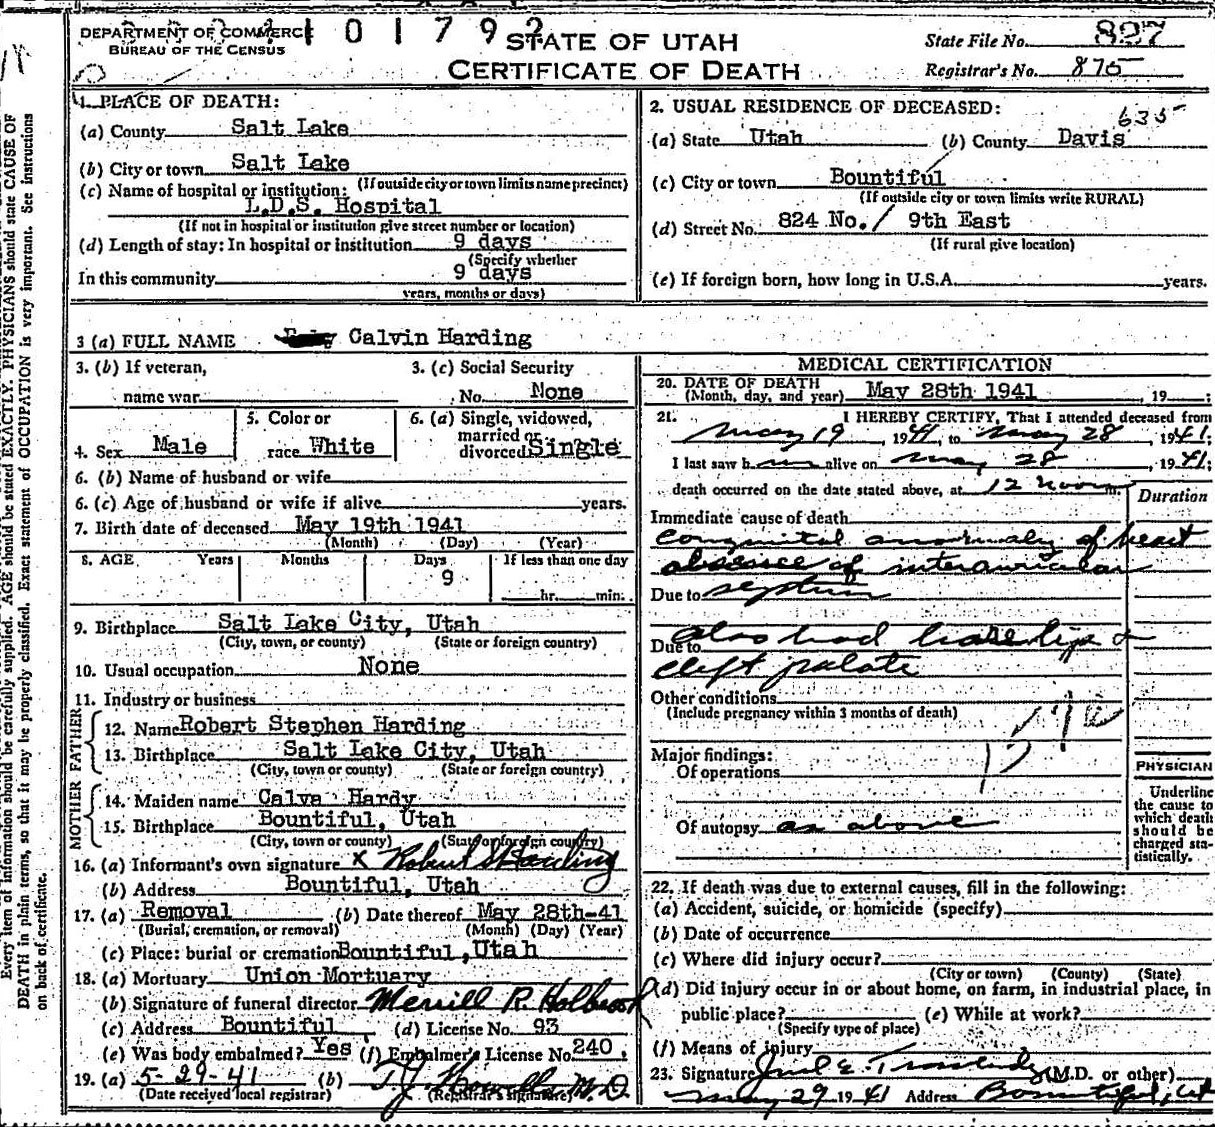 DEPARTMENT OF COMMERCE
BUREAU OF THE CENSUS
101792
STATE OF UTAH
CERTIFICATE OF DEATH
State File No. 827
Registrar's No. 875
1. PLACE OF DEATH:
(a) County Salt Lake
(b) City or town Salt Lake
(If outside city or town limits name precinct)
(c) Name of hospital or institution:
L.D.S. Hospital
(If not in hospital or institution give street number or location)
(d) Length of stay: In hospital or institution 9 days
(Specify whether
In this community 9 days
years, months or days)
2. USUAL RESIDENCE OF DECEASED:
635
(a) State Utah (b) County Davis
(c) City or town Bountiful
(If outside city or town limits write RURAL)
(d) Street No. 824 No. / 9th East
(If rural give location)
(e) If foreign born, how long in U.S.A. years.
3 (a) FULL NAME Calvin Harding
3. (b) If veteran,
name war
3. (c) Social Security
No. None
4. Sex Male
5. Color or
race White
6. (a) Single, widowed,
married or
divorced Single
6. (b) Name of husband or wife
6. (c) Age of husband or wife if alive years.
7. Birth date of deceased May 19th 1941
(Month) (Day) (Year)
8. AGE Years Months Days If less than one day
9
hr. min.
9. Birthplace Salt Lake City, Utah
(City, town, or county) (State or foreign country)
10. Usual occupation None
11. Industry or business
FATHER
12. Name Robert Stephen Harding
13. Birthplace Salt Lake City, Utah
(City, town or county) (State or foreign country)
MOTHER
14. Maiden name Calva Hardy
15. Birthplace Bountiful, Utah
(City, town or county) (State or foreign country)
16. (a) Informant's own signature x Robert S Harding
(b) Address Bountiful, Utah
17. (a) Removal (b) Date thereof May 28th-41
(Burial, cremation, or removal) (Month) (Day) (Year)
(c) Place: burial or cremation Bountiful, Utah
18. (a) Mortuary Union Mortuary
(b) Signature of funeral director Merrill R. Holbrook
(c) Address Bountiful (d) License No. 93
(e) Was body embalmed? Yes (f) Embalmer's License No. 240
19. (a) 5-29-41 (b) T.J. Howells M.D.
(Date received local registrar) (Registrar's signature)
MEDICAL CERTIFICATION
20. DATE OF DEATH
(Month, day, and year) May 28th 1941, 19 ;
21. I HEREBY CERTIFY, That I attended deceased from
May 19, 1941, to May 28, 1941;
I last saw him alive on May 28, 1941;
death occurred on the date stated above, at 12 noon m.
Duration
Immediate cause of death
congenital anormaly of heart
absence of interauricular
Due to septum
also had harelip &
Due to
cleft palate
Other conditions
(Include pregnancy within 3 months of death)
Major findings:
Of operations
Of autopsy as above
PHYSICIAN
Underline
the cause to
which death
should be
charged sta-
tistically.
22. If death was due to external causes, fill in the following:
(a) Accident, suicide, or homicide (specify)
(b) Date of occurrence
(c) Where did injury occur?
(City or town) (County) (State)
(d) Did injury occur in or about home, on farm, in industrial place, in
public place? (e) While at work?
(Specify type of place)
(f) Means of injury
23. Signature (M.D. or other)
May 29 1941 Address Bountiful, Ut
Every item of information should be carefully supplied. AGE should be stated EXACTLY. PHYSICIANS should state CAUSE OF
DEATH in plain terms, so that it may be properly classified. Exact statement of OCCUPATION is very important. See instructions
on back of certificate.